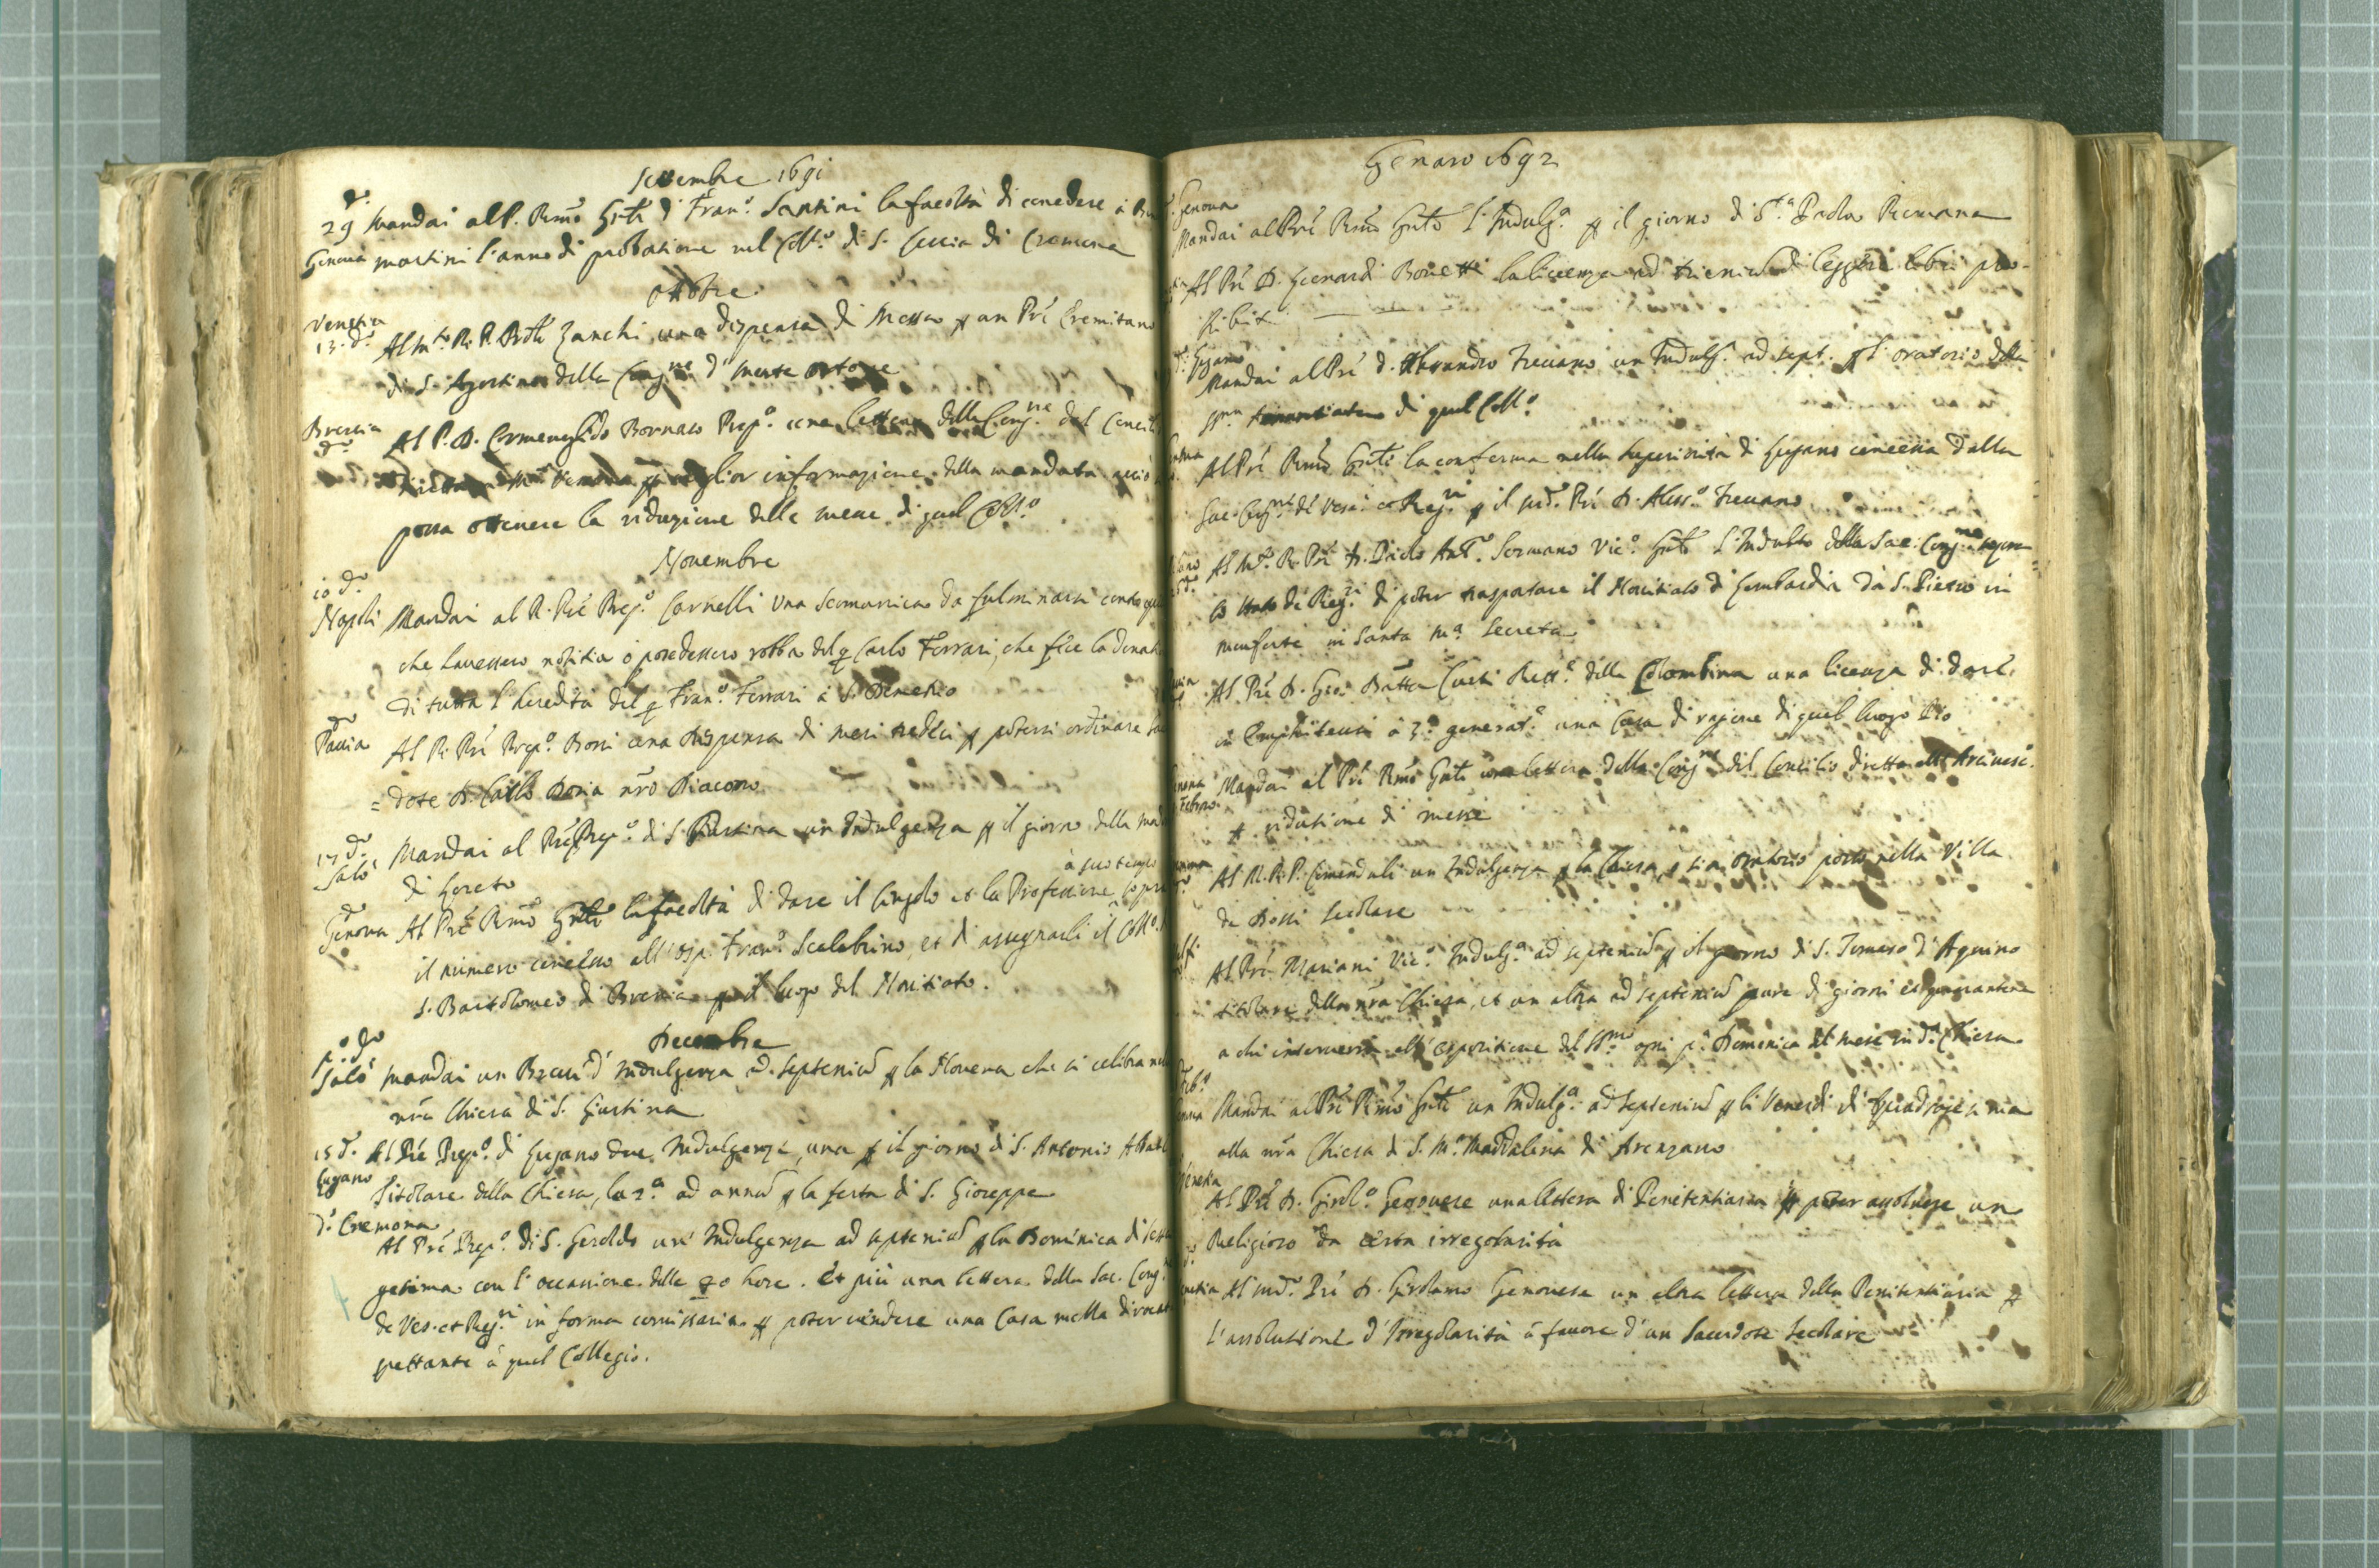 Settembre 1691
29 d.º Mandai al P. Rmõ Gñle D. Fran.º Santini la facoltà di concedere à
Genova martini l'anno di probatione nel Coll.º di S. Lucia di Cremona
Ottobre
Venetia
13. d.º Al M.to R. P. Zanchi una dispensa di Messa p un Prê Eremitano
di S. Agostino della Cong.ne d'
Brescia
d.º Al P. D. Ermenegildo Bornato Prep.º una lettera della Cong.ne del Concil
miglior informazione della mandata acciò
possa ottenere la riduzione delle messe di quel Coll.º
Novembre
10 d.º
Napoli Mandai al R. Prê Prep.º Carnelli una Scomunica da fulminarsi contro
che havessero notitia ò possedessero robba del q Carlo Ferrari, che fece la
di tutta l'heredità del q Fran.º Ferrari à S. Demetrio
d.º
Pavia Al R. Prê Prep.º Bossi una dispensa di mesi tredici p potersi ordinare
= dote D. Carlo Doria nrõ Diacono
17 d.º
Salò Mandai al Prê Prep.º di S. Giustina un Indulgenza p il giorno della
di Loreto
à suo tempo
d.º
Genova Al Prê Rmõ Gñle la facoltà di dare il Cingolo et la Professione
il numero concesso all' Osp. Fran.º Scalabrino, et di assegnarli il Coll.º
S. Bartolomeo di Brescia p il luogo del Novitiato.
Decembre
p.º d.º
Salò Mandai un Breve d'Indulgenza ad septeniũ p la Novena che si celebra
nrã Chiesa di S. Giustina
15 d.º Al Prê Prep.º di Lugano due Indulgenze, una p il giorno di S. Antonio
Lugano Titolare della Chiesa, la 2.a ad annũ p la festa di S. Gioseppe
d.º Cremona
Al Prê Prep.º di S. Geroldo un' Indulgenza ad septeniũ p la Dominica di
gesima con l'occasione delle 40 hore. Et più una lettera della Sac. Cong.
de Ves. et Reg.ri in forma p poter vendere una Casa mezza
spettante à quel Collegio.
Genaro 1692
Genova
Mandai al Prê Rmõ Gñle l'Indulg.a p il giorno di S.ta Paola Romana
Al Prê D. Bonetti la licenza ad trieniũ di leggere libri pro-
hibiti
Lugano
Mandai al Prê D. Alesandro Treuano un Indulg. ad sept. p l'oratorio della
SS.ma di quel Coll.º
Al Prê Rmõ Gñle la conferma nella superiorità di Lugano concessa dalla
Sac. Cong.ne de Vesc. et Reg.ri p il md.º Prê D. Aless.º Treuano
Al M.º R. Prê D. Paolo Ant.º Sormano Vic.º Gñle l'Indulto della Sac. Cong.ne
lo stato de Reg.ri di poter trasportare il Novitiato di Lombardia da S. Pietro in
monforte in Santa M.a Secreta
Al Prê D. Gio: Batta Curti Rett.e della Colombina una licenza di dare
in Emphiteusi à 3.a generat.e una Casa di ragione di quel luogo Pio
Mandai al Prê Rmõ Gñle una lettera della Cong.ne del Concilio diretta all' Arcivesc.
Febraro
p. riduzione di messe
Al M. R. P. Cimenduli un Indulgenza p la Chiesa, ò sia oratorio posto nella Villa
de Bossi secolare
Al Prê Mariani Vic.º Indulg.a ad septeniũ p il giorno di S. Tomaso d'Aquino
titolare della nrã Chiesa, et un altra ad septeniũ pure di giorni quaranta
a chi interverrà all' espositione del SS.mo ogni p.a Domenica del mese in d.a Chiesa
Mandai al Prê Rmõ Gñle un Indulg.a ad septeniũ p li Venerdì di Quadragesima
alla nrã Chiesa di S. M.a Maddalena di Arenzano
Venetia
Al Prê D. Girol.º Genovese una lettera di Penitentiaria p poter assolvere un
Religioso da certa irregolarità
Al md.º Prê D. Girolamo Genovese un altra lettera della Penitentiaria p
l'assolutione d'Irregolarità à favore d'un Sacerdote Secolare